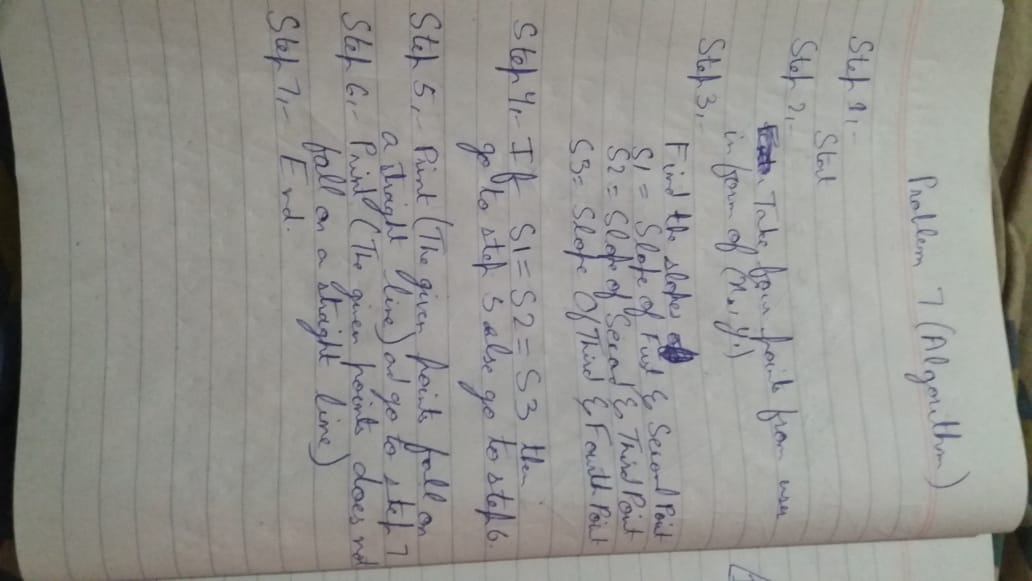 Problem 7 (Algorithm)
Step 1,-
Start
Step 2,-
Take four points from user
in form of (x., y.)
Step 3,-
Find the slopes
S1 = Slope of First & Second Point
S2 = Slope of Second & Third Point
S3 = Slope Of Third & Fourth Point
Step 4,- If S1 = S2 = S3 then
go to step 5 else go to step 6.
Step 5,- Print (The given points fall on
a straight line) and go to step 7
Step 6,- Print (The given points does not
fall on a straight line)
Step 7,- End.